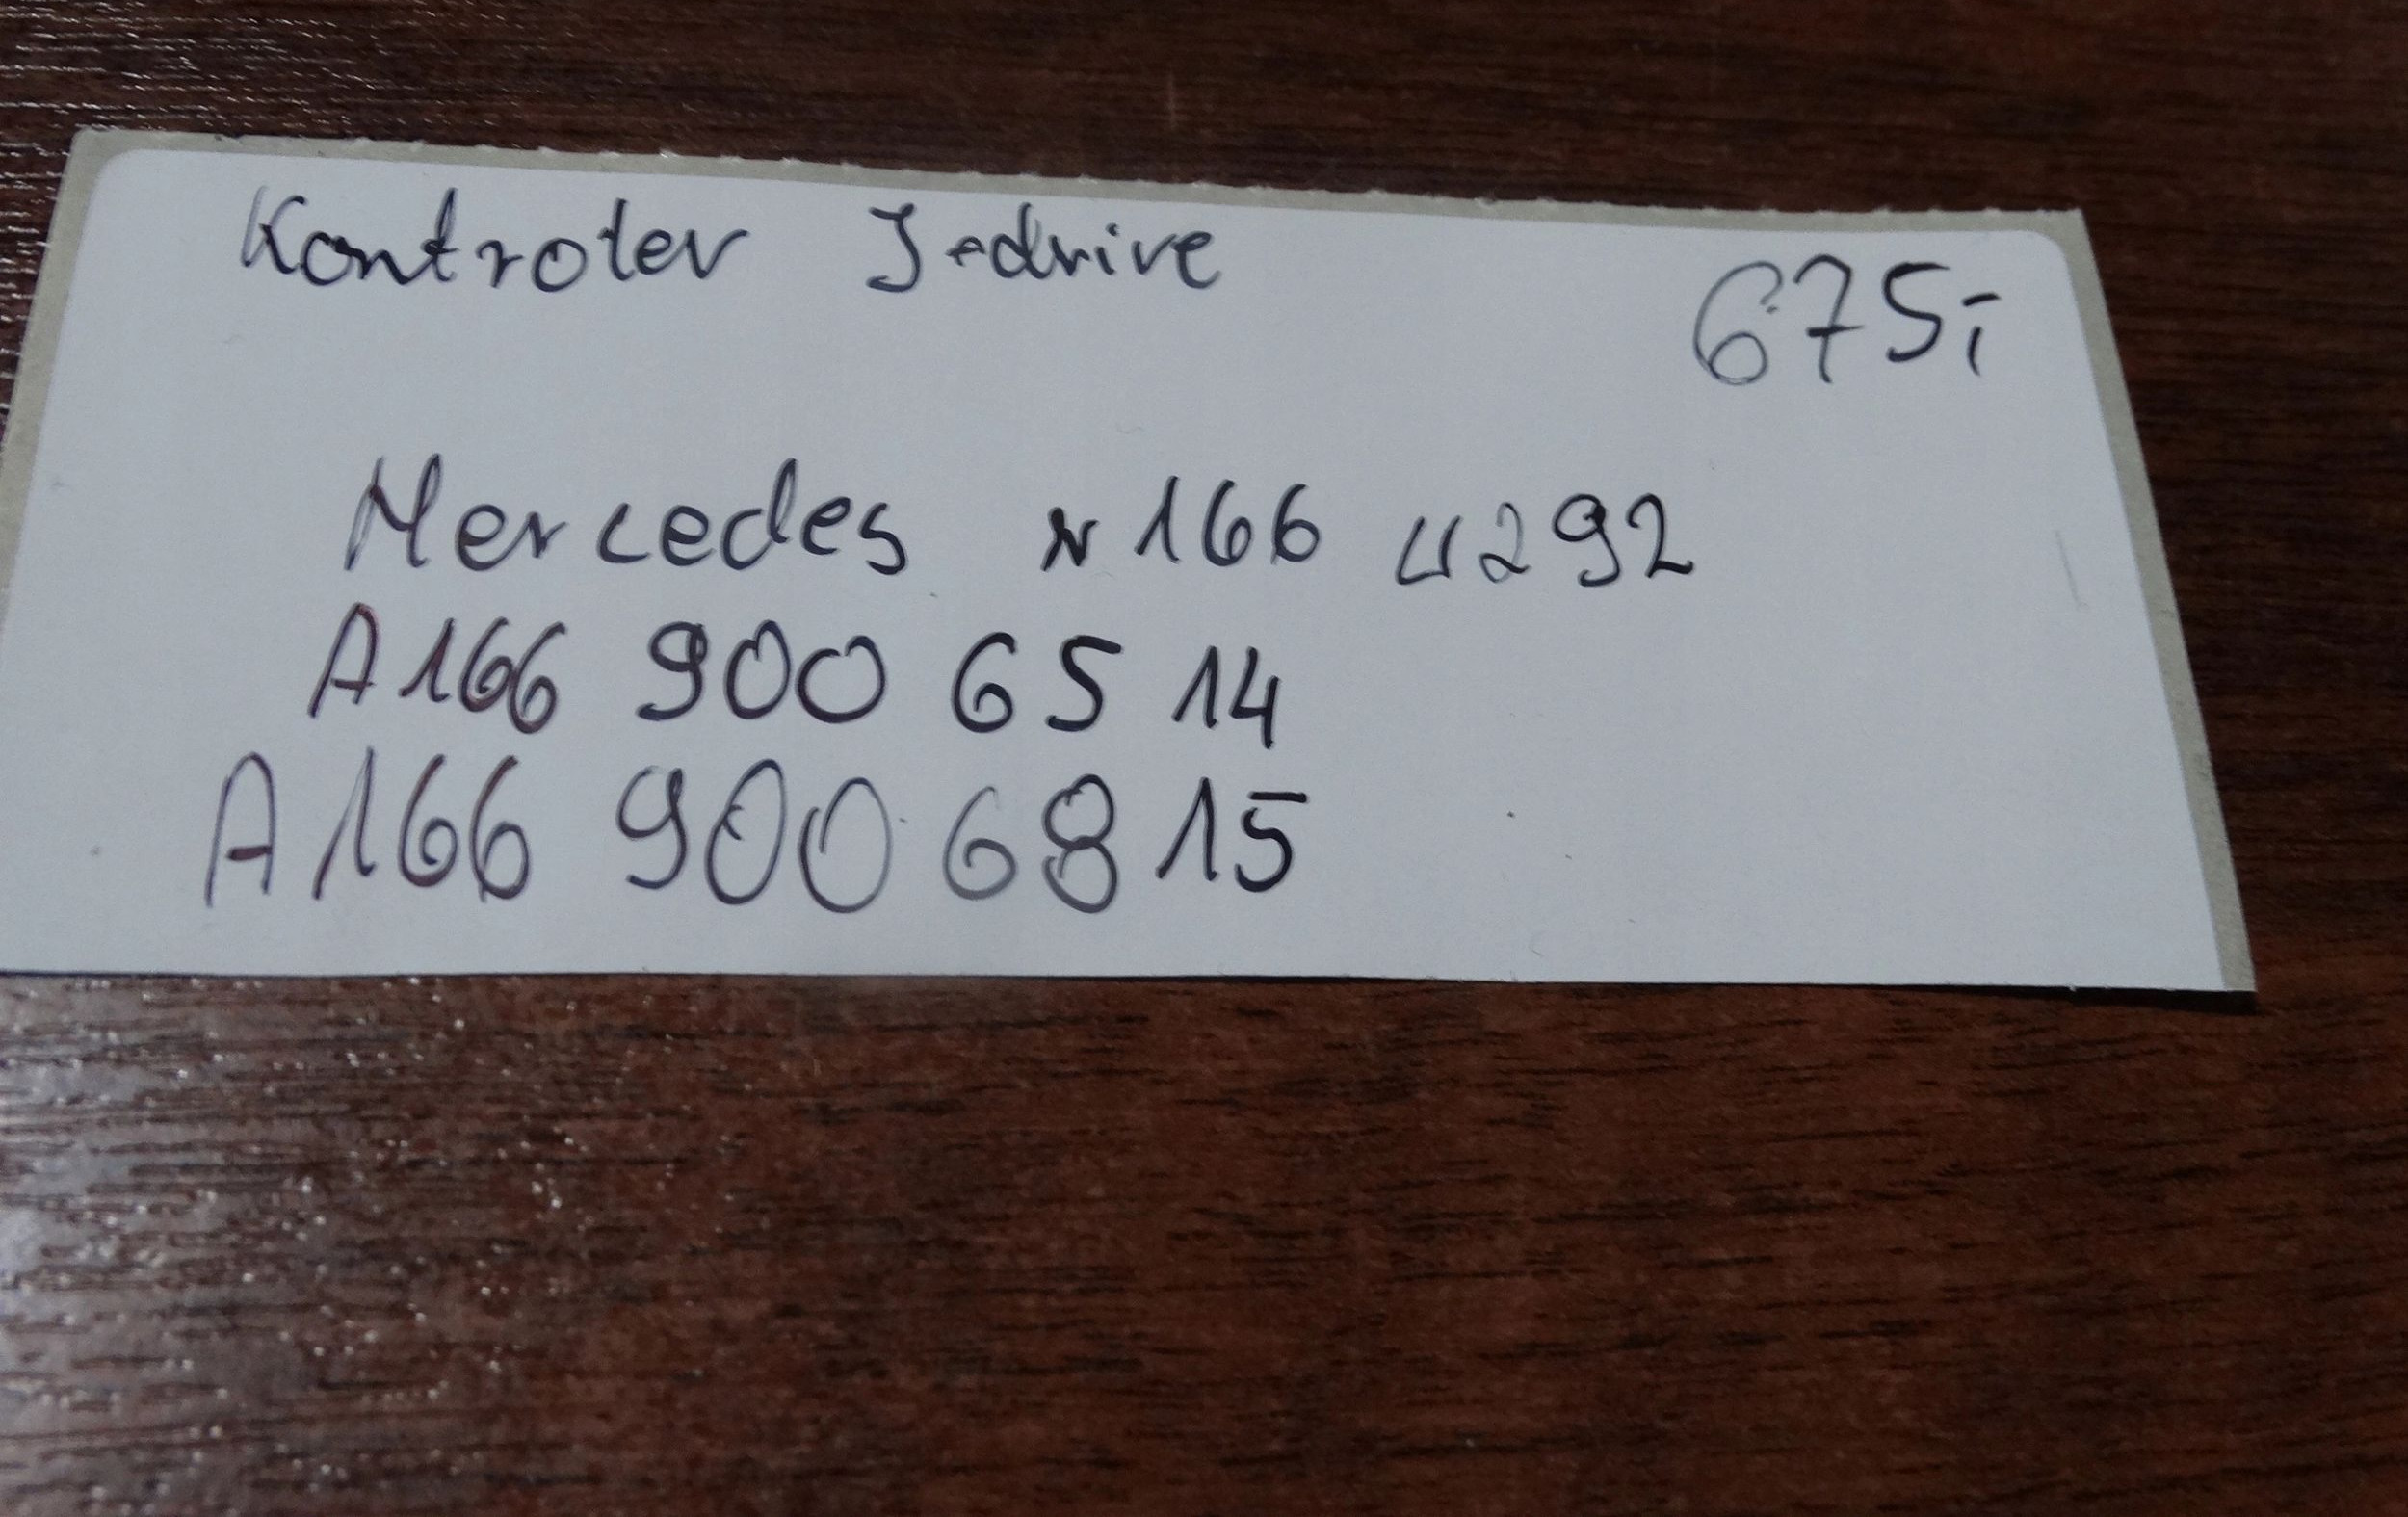 Kontroler I-drive
675,-
Mercedes w166 w292
A166 900 65 14
A166 900 68 15